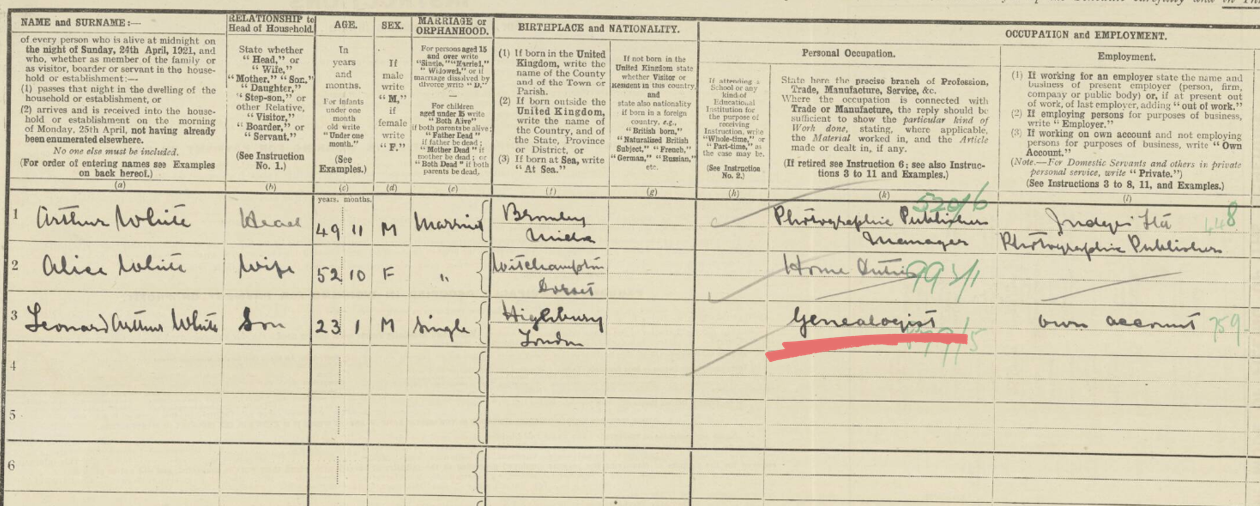 NAME and SURNAME:—
of every person who is alive at midnight on
the night of Sunday, 24th April, 1921, and
who, whether as member of the family or
as visitor, boarder or servant in the house-
hold or establishment:—
(1) passes that night in the dwelling of the
household or establishment, or
(2) arrives and is received into the house-
hold or establishment on the morning
of Monday, 25th April, not having already
been enumerated elsewhere.
No one else must be included.
(For order of entering names see Examples
on back hereof.)
(a)
RELATIONSHIP to
Head of Household.
State whether
"Head," or
"Wife,"
"Mother," "Son,"
"Daughter,"
"Step-son," or
other Relative,
"Visitor,"
"Boarder," or
"Servant."
(See Instruction
No. 1.)
(b)
AGE.
In
years
and
months.
For infants
under one
month
old write
"Under one
month."
(See
Examples.)
(c)
years. months.
SEX.
If
male
write
"M.,"
if
female
write
"F."
(d)
MARRIAGE or
ORPHANHOOD.
For persons aged 15
and over write
"Single," "Married,"
"Widowed," or if
marriage dissolved by
divorce write "D."
For children
aged under 15 write
"Both Alive"
if both parents be alive;
"Father Dead"
if father be dead;
"Mother Dead" if
mother be dead; or
"Both Dead" if both
parents be dead.
(e)
BIRTHPLACE and NATIONALITY.
(1) If born in the United
Kingdom, write the
name of the County
and of the Town or
Parish.
(2) If born outside the
United Kingdom,
write the name of the
Country, and of
the State, Province
or District, or
(3) If born at Sea, write
"At Sea."
(f)
If not born in the
United Kingdom state
whether Visitor or
Resident in this country,
and
state also nationality
if born in a foreign
country, e.g.,
"British born,"
"Naturalised British
Subject," "French,"
"German," "Russian,"
etc.
(g)
If attending a
School or any
kind of
Educational
Institution for
the purpose of
receiving
Instruction, write
"Whole-time," or
"Part-time," as
the case may be.
(See Instruction
No. 2.)
(h)
OCCUPATION and EMPLOYMENT.
Personal Occupation.
State here the precise branch of Profession,
Trade, Manufacture, Service, &c.
Where the occupation is connected with
Trade or Manufacture, the reply should be
sufficient to show the particular kind of
Work done, stating, where applicable,
the Material worked in, and the Article
made or dealt in, if any.
(If retired see Instruction 6; see also Instruc-
tions 3 to 11 and Examples.)
(k)
Employment.
(1) If working for an employer state the name and
business of present employer (person, firm,
company or public body) or, if at present out
of work, of last employer, adding "out of work."
(2) If employing persons for purposes of business,
write "Employer."
(3) If working on own account and not employing
persons for purposes of business, write "Own
Account."
(Note.—For Domestic Servants and others in private
personal service, write "Private.")
(See Instructions 3 to 8, 11, and Examples.)
(l)
1 Arthur White Head 49 11 M Married Bromley Photographic Publisher Judges Ltd
Middx Manager Photographic Publishers
2 Alice White Wife 52 10 F " Witchampton Home Duties
Dorset
3 Leonard Arthur White Son 23 1 M Single Highbury Genealogist own account 759
London
4
5
6